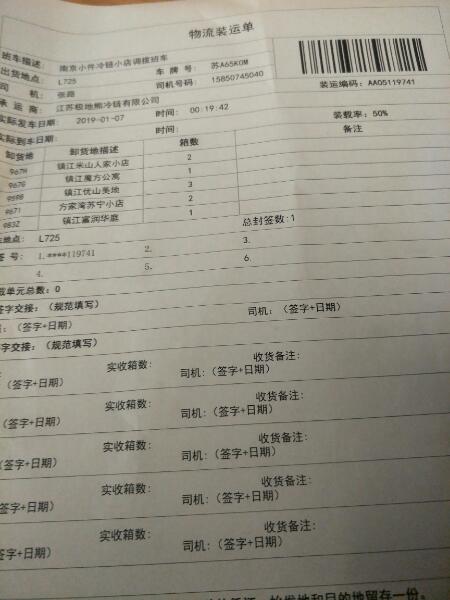 物流装运单
班车描述: 南京小件冷链小店调拨班车
出货地点: L725 车 牌 号: 苏A65K0M
司 机: 张路 司机号码: 15850745040
承 运 商: 江苏极地熊冷链有限公司
装运编码: AA05119741
实际发车日期: 2019-01-07 时间: 00:19:42 装载率: 50%
实际到车日期: 时间:
卸货地 卸货地描述 箱数 备注
967H 镇江米山人家小店 2
967G 镇江魔方公寓 1
959B 镇江优山美地 3
9671 方家湾苏宁小店 2
983Z 镇江富润华庭 1
地点: L725 总封签数:1
签 号: 1.****119741 2. 3.
4. 5. 6.
载单元总数: 0
签字交接: (规范填写)
: (签字+日期) 司机: (签字+日期)
字交接: (规范填写)
实收箱数: 收货备注:
: (签字+日期) 司机: (签字+日期)
实收箱数: 收货备注:
(签字+日期) 司机: (签字+日期)
实收箱数: 收货备注:
(签字+日期) 司机: (签字+日期)
实收箱数: 收货备注:
(签字+日期) 司机: (签字+日期)
实收箱数: 收货备注:
(签字+日期) 司机: (签字+日期)
始发地和目的地留存一份。